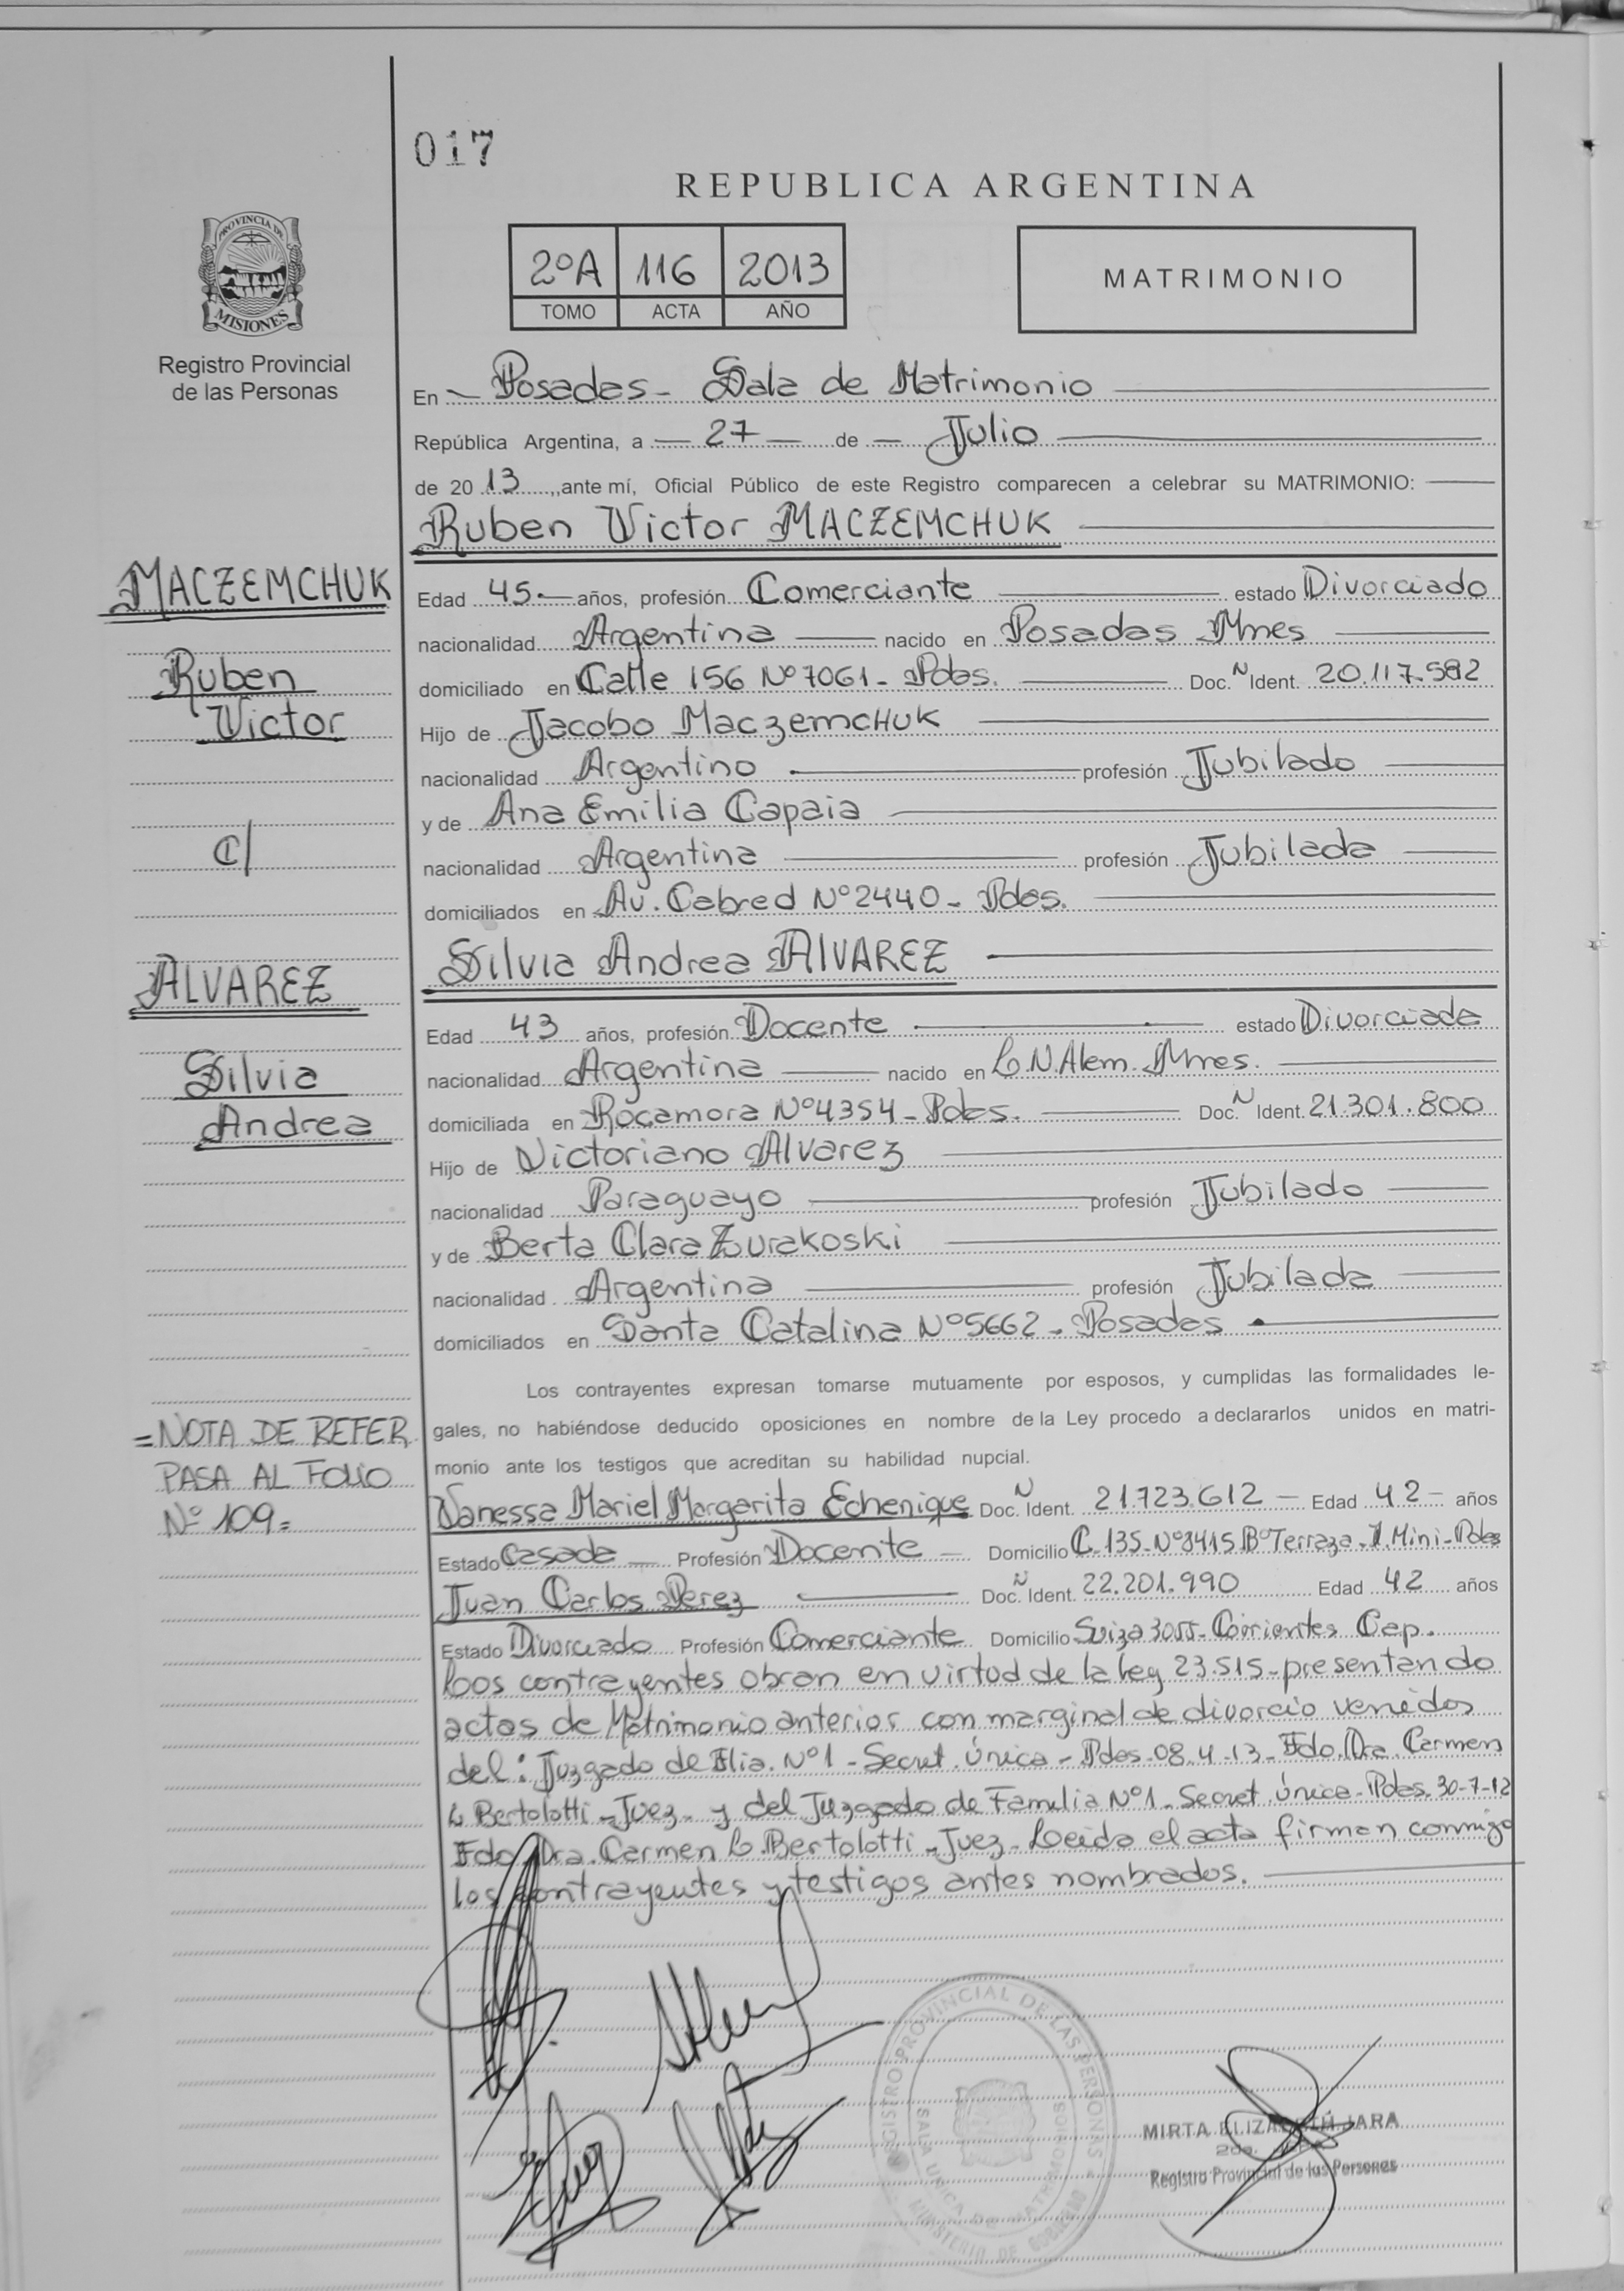 017
REPUBLICA ARGENTINA
PROVINCIA DE
MISIONES
Registro Provincial
de las Personas
2ºA 116 2013
TOMO ACTA AÑO
MATRIMONIO
En Posadas - Sala de Matrimonio
República Argentina, a 27 de Julio
de 20 13, ante mí, Oficial Público de este Registro comparecen a celebrar su MATRIMONIO:
Ruben Victor MACZEMCHUK
MACZEMCHUK
Ruben
Victor
C/
ALVAREZ
Silvia
Andrea
Edad 45 años, profesión Comerciante estado Divorciado
nacionalidad Argentina nacido en Posadas Mnes
domiciliado en Calle 156 Nº 7061 - Pdas. Doc. N Ident. 20.117.582
Hijo de Jacobo MaczemcHUK
nacionalidad Argentino profesión Jubilado
y de Ana Emilia Capaia
nacionalidad Argentina profesión Jubilada
domiciliados en Av. Cabred Nº 2440 - Pdas.
Silvia Andrea AlVAREZ
Edad 43 años, profesión Docente estado Divorciada
nacionalidad Argentina nacido en L.N.Alem. Mnes.
domiciliada en Rocamora Nº 4354 - Pdas. Doc. N Ident. 21.301.800
Hijo de Victoriano Alvarez
nacionalidad Paraguayo profesión Jubilado
y de Berta Clara Zurakoski
nacionalidad Argentina profesión Jubilada
domiciliados en Santa Catalina Nº 5662 - Posadas
Los contrayentes expresan tomarse mutuamente por esposos, y cumplidas las formalidades le-
gales, no habiéndose deducido oposiciones en nombre de la Ley procedo a declararlos unidos en matri-
monio ante los testigos que acreditan su habilidad nupcial.
=NOTA DE REFER
PASA AL FOLIO
Nº 109=
Vanessa Mariel Margarita Echenique Doc. N Ident. 21.723.612 - Edad 42 - años
Estado Casada Profesión Docente Domicilio C. 135 - Nº 8415 Bº Terraza - I. Mini - Pdas
Juan Carlos Perez Doc. N Ident. 22.201.990 Edad 42 años
Estado Divorciado Profesión Comerciante Domicilio Suiza 3055 - Corrientes Cap.
Loos contrayentes obran en virtud de la ley 23.515 - presentando
actas de Matrimonio anterior con marginal de divorcio venidos
del: Juzgado de Flia. Nº 1 - Secret. Única - Pdas - 08.4.13 - Fdo. Dra. Carmen
L. Bertolotti - Juez - y del Juzgado de Familia Nº 1 - Secret. Única - Pdas. 30-7-12
Fdo. Dra. Carmen L. Bertolotti - Juez - Leida el acta firman conmigo
los contrayentes y testigos antes nombrados.
REGISTRO PROVINCIAL DE LAS PERSONAS
SALA UNICA DE MATRIMONIOS
MINISTERIO DE GOBIERNO
MIRTA ELIZABETH JARA
Registro Provincial de las Personas